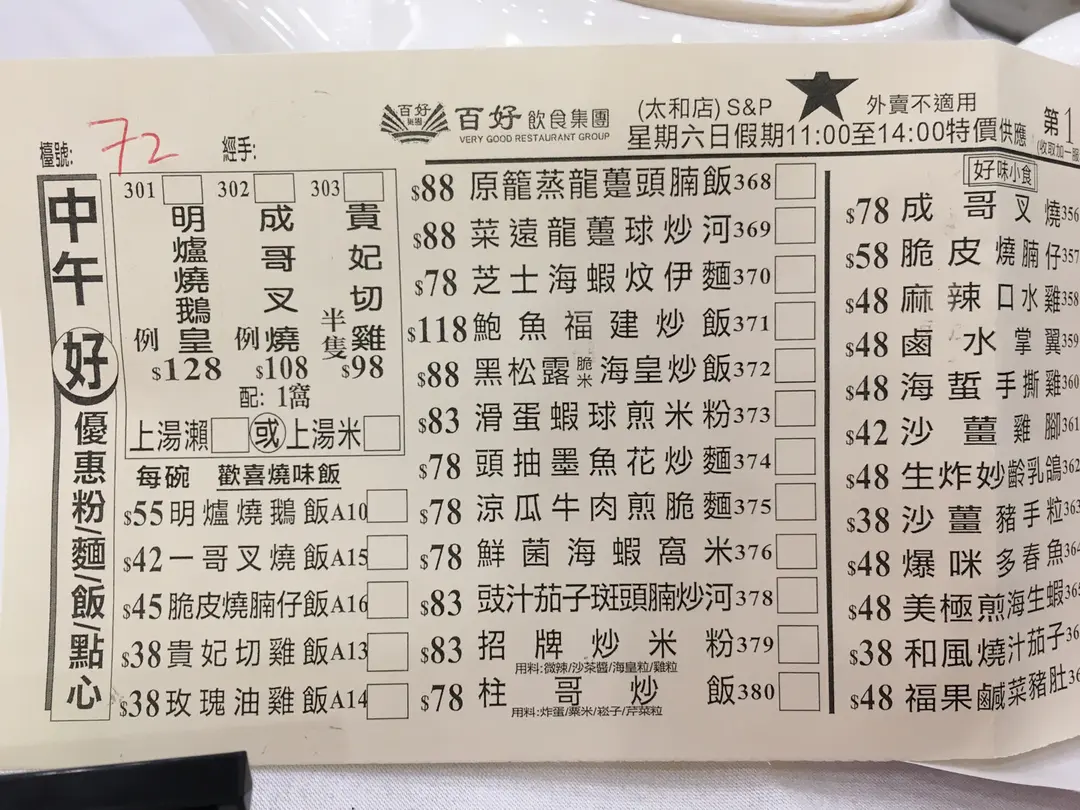 檯號: 72
經手:
百好 飲食集團
VERY GOOD RESTAURANT GROUP
(太和店) S&P ★ 外賣不適用
星期六日假期11:00至14:00特價供應
第1
(收取加一服
中午好優惠粉/麵/飯/點心
301 明爐燒鵝皇 例 $128
302 成哥叉燒 例 $108
303 貴妃切雞 半隻 $98
配: 1窩
上湯瀨 或 上湯米
每碗 歡喜燒味飯
$55 明爐燒鵝飯 A10
$42 一哥叉燒飯 A15
$45 脆皮燒腩仔飯 A16
$38 貴妃切雞飯 A13
$38 玫瑰油雞飯 A14
$88 原籠蒸龍躉頭腩飯 368
$88 菜遠龍躉球炒河 369
$78 芝士海蝦炆伊麵 370
$118 鮑魚福建炒飯 371
$88 黑松露脆米海皇炒飯 372
$83 滑蛋蝦球煎米粉 373
$78 頭抽墨魚花炒麵 374
$78 涼瓜牛肉煎脆麵 375
$78 鮮菌海蝦窩米 376
$83 豉汁茄子斑頭腩炒河 378
$83 招牌炒米粉 379
用料:微辣/沙茶醬/海皇粒/雞粒
$78 柱哥炒飯 380
用料:炸蛋/粟米/崧子/芹菜粒
好味小食
$78 成哥叉燒 356
$58 脆皮燒腩仔 357
$48 麻辣口水雞 358
$48 鹵水掌翼 359
$48 海蜇手撕雞 360
$42 沙薑雞腳 361
$48 生炸妙齡乳鴿 362
$38 沙薑豬手粒 363
$48 爆咪多春魚 364
$48 美極煎海生蝦 365
$38 和風燒汁茄子 36
$48 福果鹹菜豬肚 36